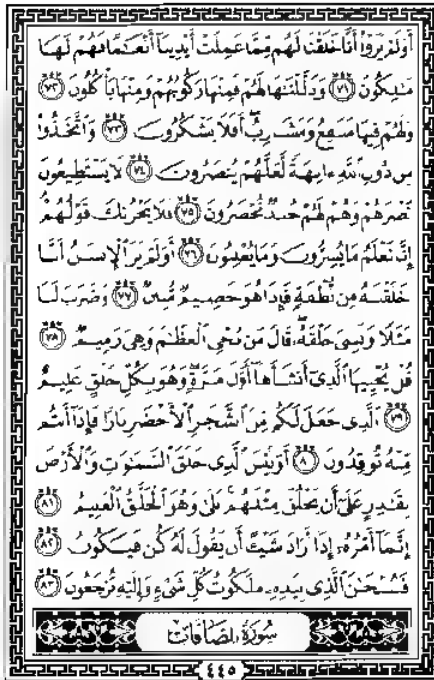 أَوَلَمْ يَرَوْا أَنَّا خَلَقْنَا لَهُم مِّمَّا عَمِلَتْ أَيْدِينَا أَنْعَٰمًا فَهُمْ لَهَا
مَٰلِكُونَ ٧١ وَذَلَّلْنَٰهَا لَهُمْ فَمِنْهَا رَكُوبُهُمْ وَمِنْهَا يَأْكُلُونَ ٧٢
وَلَهُمْ فِيهَا مَنَٰفِعُ وَمَشَارِبُ أَفَلَا يَشْكُرُونَ ٧٣ وَٱتَّخَذُوا۟
مِن دُونِ ٱللَّهِ ءَالِهَةً لَّعَلَّهُمْ يُنصَرُونَ ٧٤ لَا يَسْتَطِيعُونَ
نَصْرَهُمْ وَهُمْ لَهُمْ جُندٌ مُّحْضَرُونَ ٧٥ فَلَا يَحْزُنكَ قَوْلُهُمْ
إِنَّا نَعْلَمُ مَا يُسِرُّونَ وَمَا يُعْلِنُونَ ٧٦ أَوَلَمْ يَرَ ٱلْإِنسَٰنُ أَنَّا
خَلَقْنَٰهُ مِن نُّطْفَةٍ فَإِذَا هُوَ خَصِيمٌ مُّبِينٌ ٧٧ وَضَرَبَ لَنَا
مَثَلًا وَنَسِىَ خَلْقَهُۥ قَالَ مَن يُحْىِ ٱلْعِظَٰمَ وَهِىَ رَمِيمٌ ٧٨
قُلْ يُحْيِيهَا ٱلَّذِىٓ أَنشَأَهَآ أَوَّلَ مَرَّةٍ وَهُوَ بِكُلِّ خَلْقٍ عَلِيمٌ
٧٩ ٱلَّذِى جَعَلَ لَكُم مِّنَ ٱلشَّجَرِ ٱلْأَخْضَرِ نَارًا فَإِذَآ أَنتُم
مِّنْهُ تُوقِدُونَ ٨٠ أَوَلَيْسَ ٱلَّذِى خَلَقَ ٱلسَّمَٰوَٰتِ وَٱلْأَرْضَ
بِقَٰدِرٍ عَلَىٰٓ أَن يَخْلُقَ مِثْلَهُم بَلَىٰ وَهُوَ ٱلْخَلَّٰقُ ٱلْعَلِيمُ ٨١
إِنَّمَآ أَمْرُهُۥٓ إِذَآ أَرَادَ شَيْـًٔا أَن يَقُولَ لَهُۥ كُن فَيَكُونُ ٨٢
فَسُبْحَٰنَ ٱلَّذِى بِيَدِهِۦ مَلَكُوتُ كُلِّ شَىْءٍ وَإِلَيْهِ تُرْجَعُونَ ٨٣
سُورَةُ الصَّافَّاتِ
٤٤٥